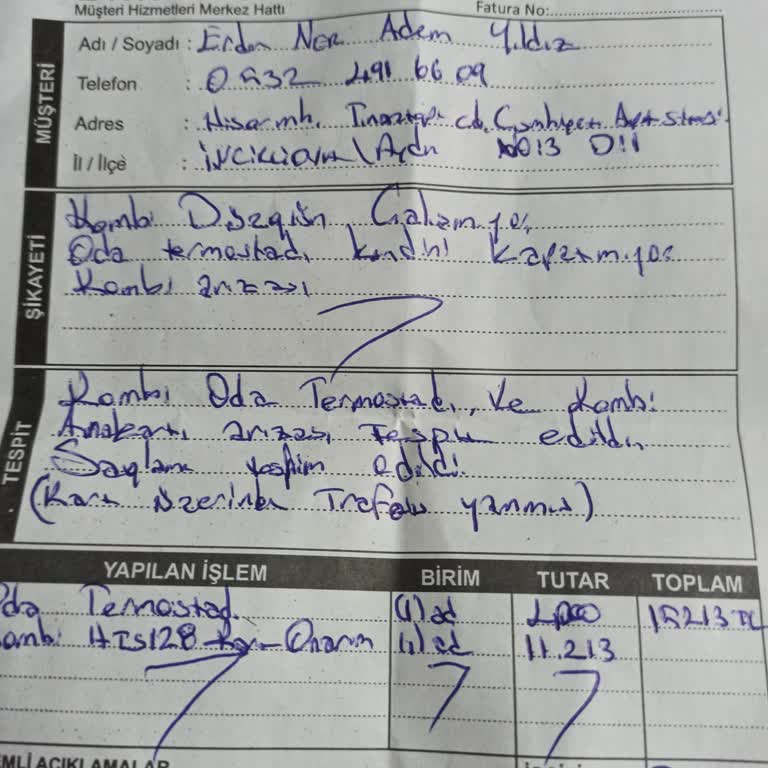 Müşteri Hizmetleri Merkez Hattı Fatura No:
MÜŞTERİ
Adı / Soyadı : Adem Yıldız
Telefon : 0532 491 66 09
Adres : Hisar mh. cd.
İl / İlçe : İncirliova \ Aydın
ŞİKAYETİ
Kombi Düzgün Çalışmıyor
Oda termostadı kendini kapatmıyor
Kombi arızası
TESPİT
Kombi Oda Termostadı, Ve Kombi
Anakartı arızası Tespit edildi,
Sağlam teslim edildi.
(Kart üzerinde Trafosu yanmış)
YAPILAN İŞLEM BİRİM TUTAR TOPLAM
Oda Termostad (1) ad 15213 TL
Kombi Onarım (1) ad 11.213